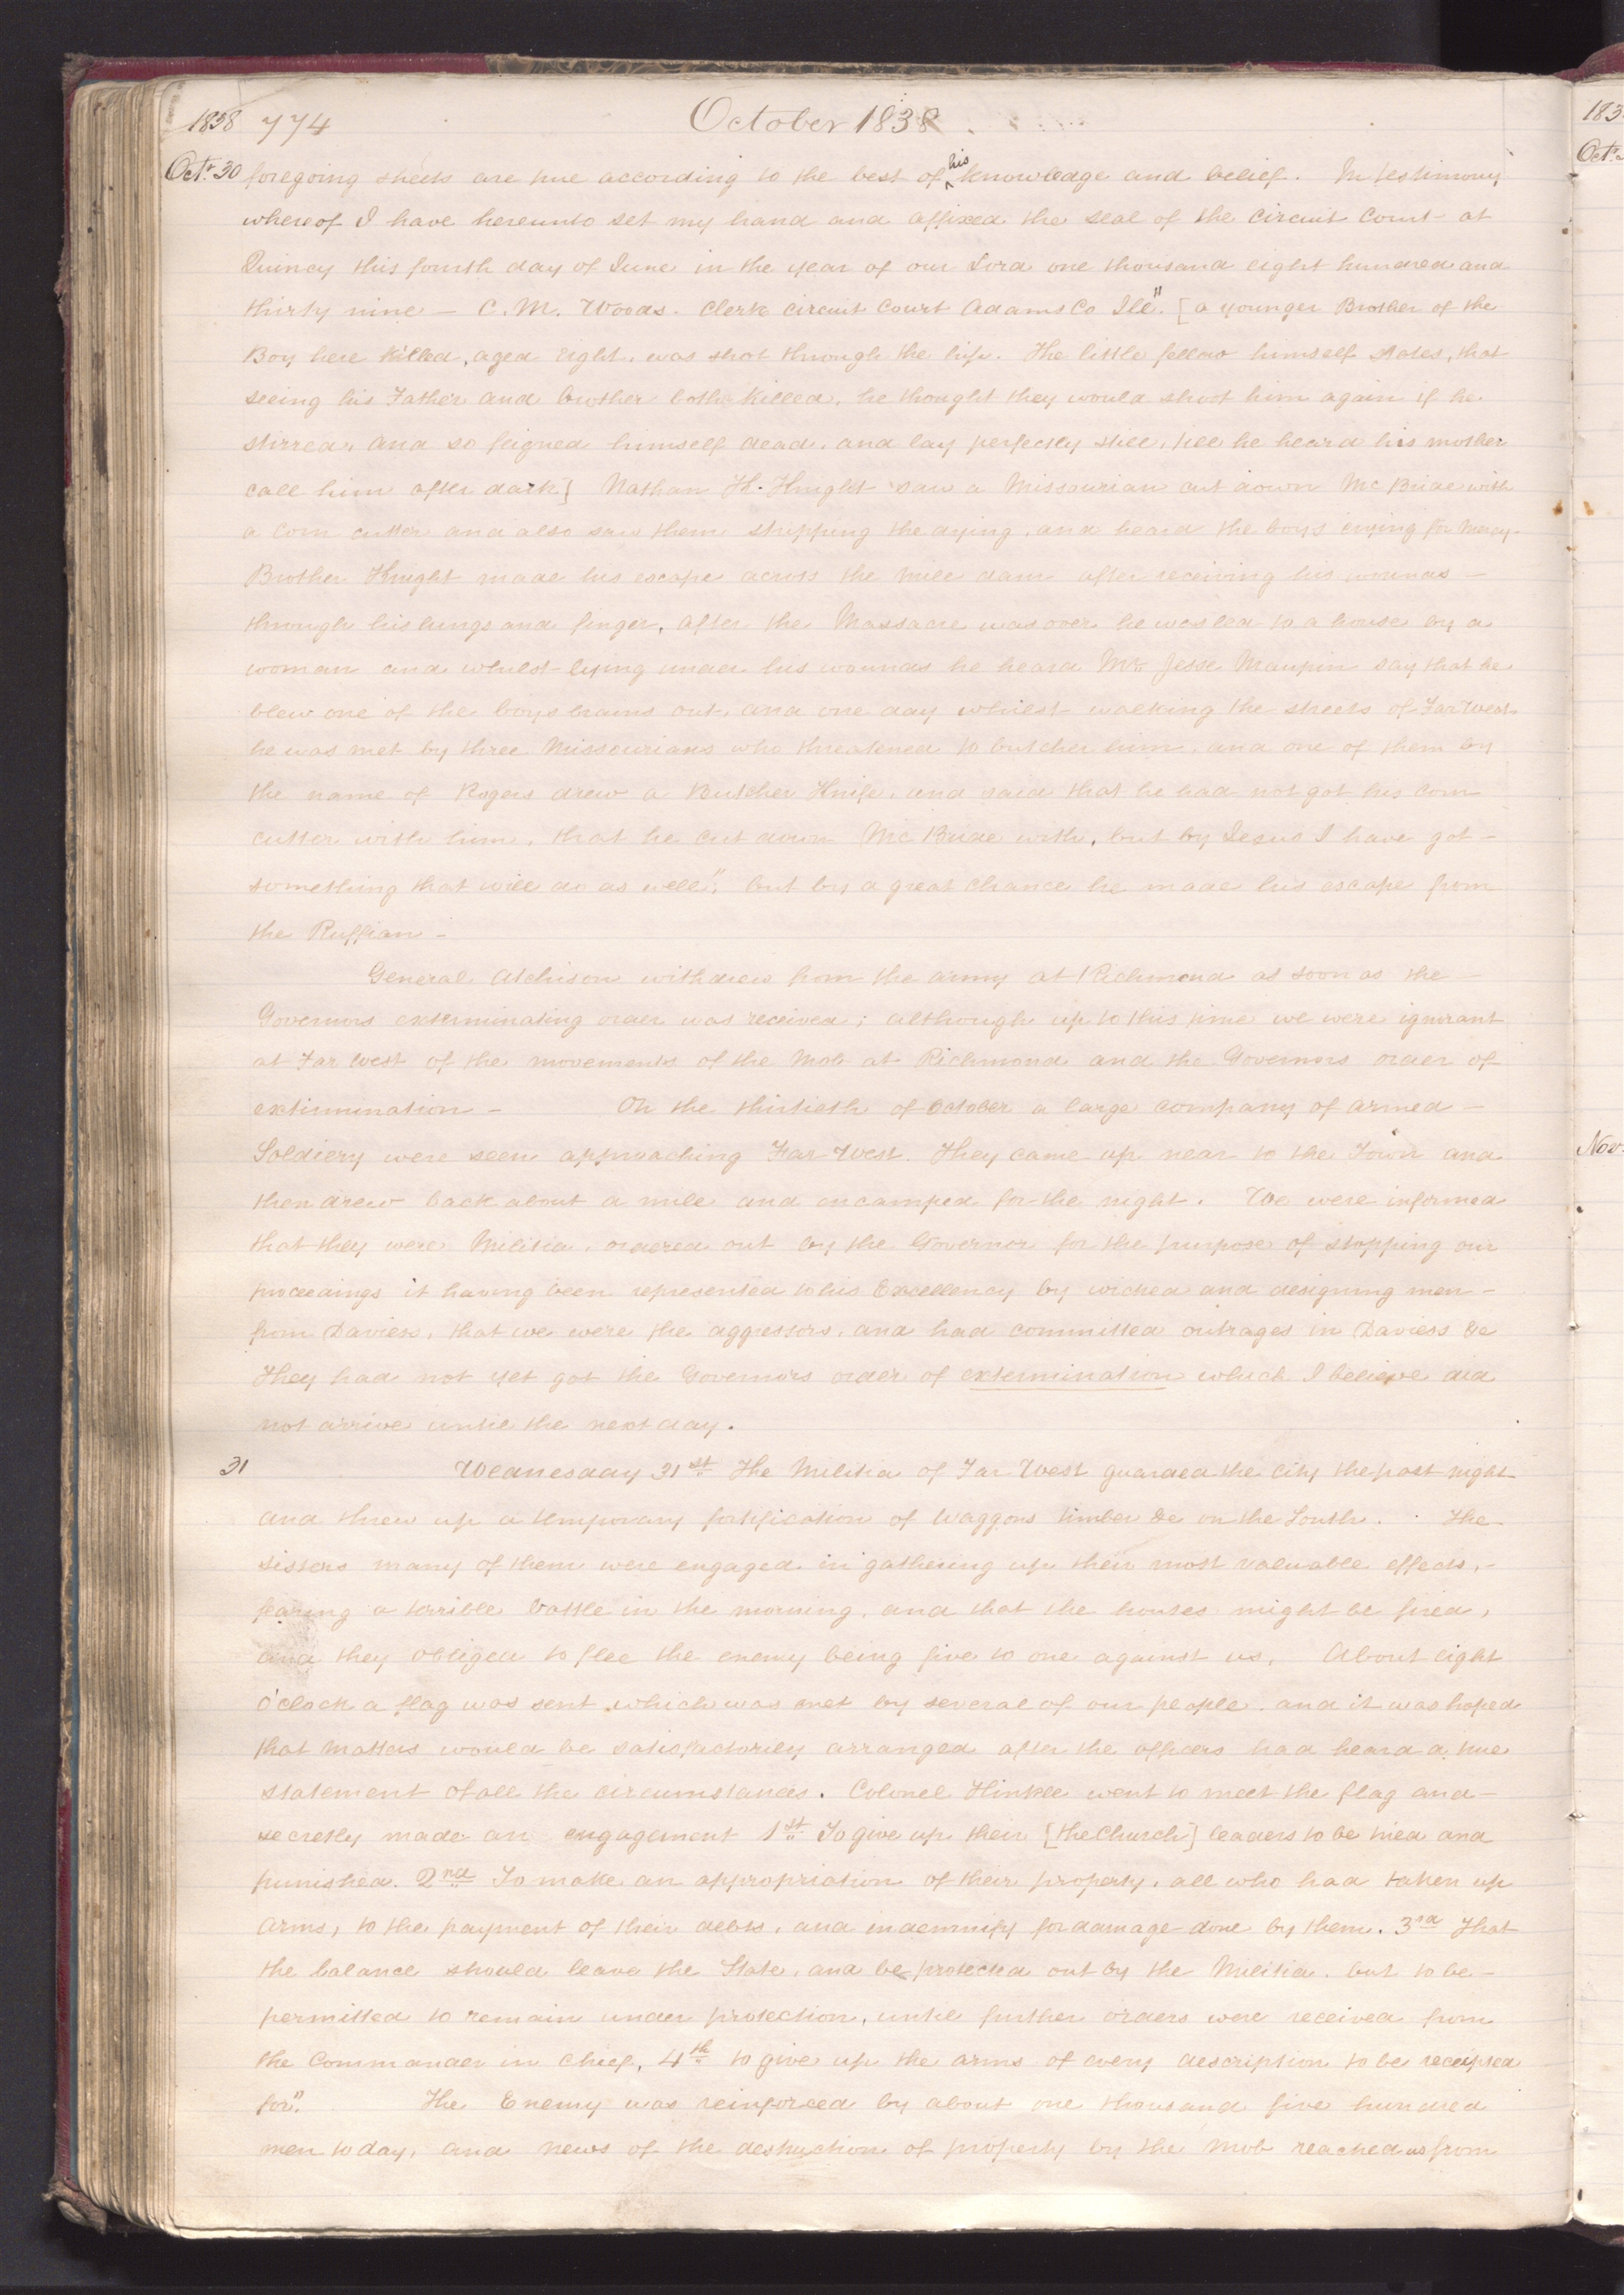 1838 774 October 1838
Oct.r 30 foregoing sheets are true according to the best of his knowledge and belief. In testimony
whereof I have hereunto set my hand and affixed the seal of the circuit court at
Quincy this fourth day of June in the year of our Lord one thousand eight hundred and
thirty nine — C. M. Woods. Clerk circuit Court Adams Co Ill". [a younger Brother of the
Boy here killed, aged eight, was shot through the hip. The little fellow himself states, that
seeing his Father and brother both killed, he thought they would shoot him again if he
stirred, and so feigned himself dead, and lay perfectly still, till he heard his mother
call him after dark] Nathan K. Knight saw a Missourian cut down Mc Bride with
a corn cutter and also saw them stripping the dying, and heard the boys crying for mercy.
Brother Knight made his escape across the mill dam after receiving his wounds —
through his lungs and finger, after the Massacre was over he was led to a house by a
woman and whilst lying under his wounds he heard Mr. Jesse Maupin say that he
blew one of the boys brains out, and one day whilst walking the streets of Far West
he was met by three Missourians who threatened to butcher him, and one of them by
the name of Rogers drew a Butcher Knife, and said that he had not got his corn
cutter with him, that he cut down Mc Bride with, but by Jesus I have got —
something that will do as well", but by a great chance he made his escape from
the Ruffian —
General Atchison withdrew from the army at Richmond as soon as the —
Governors exterminating order was received; although up to this time we were ignorant
at Far West of the movements of the Mob at Richmond and the Governors order of
extermination — On the thirtieth of October a large company of armed —
Soldiery were seen approaching Far West. They came up near to the Town and
then drew back about a mile and encamped for the night. We were informed
that they were Militia, ordered out by the Governor for the purpose of stopping our
proceedings it having been represented to his Excellency by wicked and designing men —
from Daviess, that we were the aggressors, and had committed outrages in Daviess &c
They had not yet got the Governors order of extermination which I believe did
not arrive until the next day.
31 Wednesday 31st The Militia of Far West guarded the city the past night
and threw up a temporary fortification of waggons timber &c on the South. The
sisters many of them were engaged in gathering up their most valuable effects, —
fearing a terrible battle in the morning, and that the houses might be fired,
and they obliged to flee the enemy being five to one against us. About eight
o'clock a flag was sent which was met by several of our people, and it was hoped
that matters would be satisfactorily arranged after the officers had heard a true
statement of all the circumstances. Colonel Hinkle went to meet the flag and —
secretly made an engagement 1st To give up their [the Church] leaders to be tried and
punished. 2nd To make an appropriation of their property, all who had taken up
arms, to the payment of their debts, and indemnify for damage done by them. 3rd That
the balance should leave the State, and be protected out by the Militia, but to be —
permitted to remain under protection, until further orders were received from
the Commander in chief, 4th to give up the arms of every description to be receipted
for". The Enemy was reinforced by about one thousand five hundred
men today, and news of the destruction of property by the mob reached us from
183
Oct.
Nov.